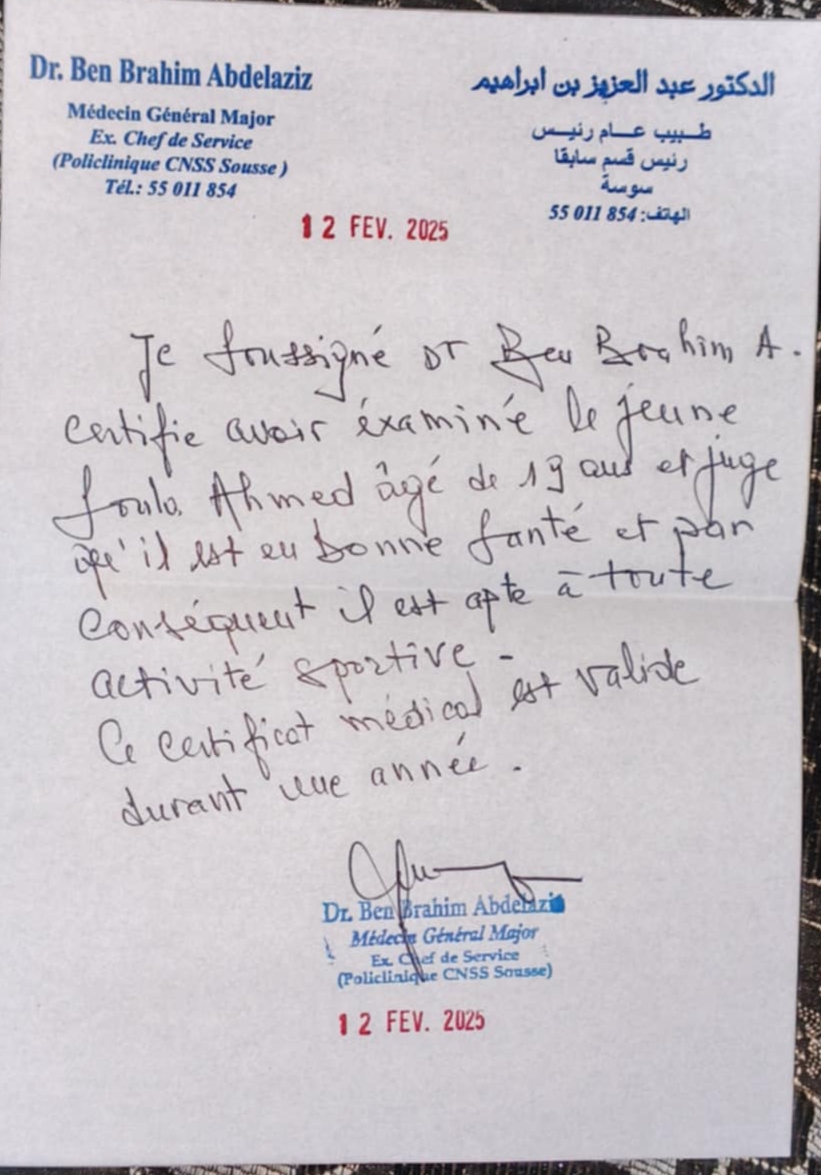 Dr. Ben Brahim Abdelaziz
Médecin Général Major
Ex. Chef de Service
(Policlinique CNSS Sousse )
Tél.: 55 011 854
الدكتور عبد العزيز بن ابراهيم
طبيب عام رئيس
رئيس قسم سابقا
سوسة
الهاتف: 55 011 854
12 FEV. 2025
Je soussigné Dr Ben Brahim A.
certifie avoir éxaminé le jeune
Soula Ahmed âgé de 19 ans et juge
qu'il est en bonne santé et par
conséquent il est apte à toute
activité sportive -
Ce certificat médical est valide
durant une année .
Dr. Ben Brahim Abdelaziz
Médecin Général Major
Ex. Chef de Service
(Policlinique CNSS Sousse)
12 FEV. 2025